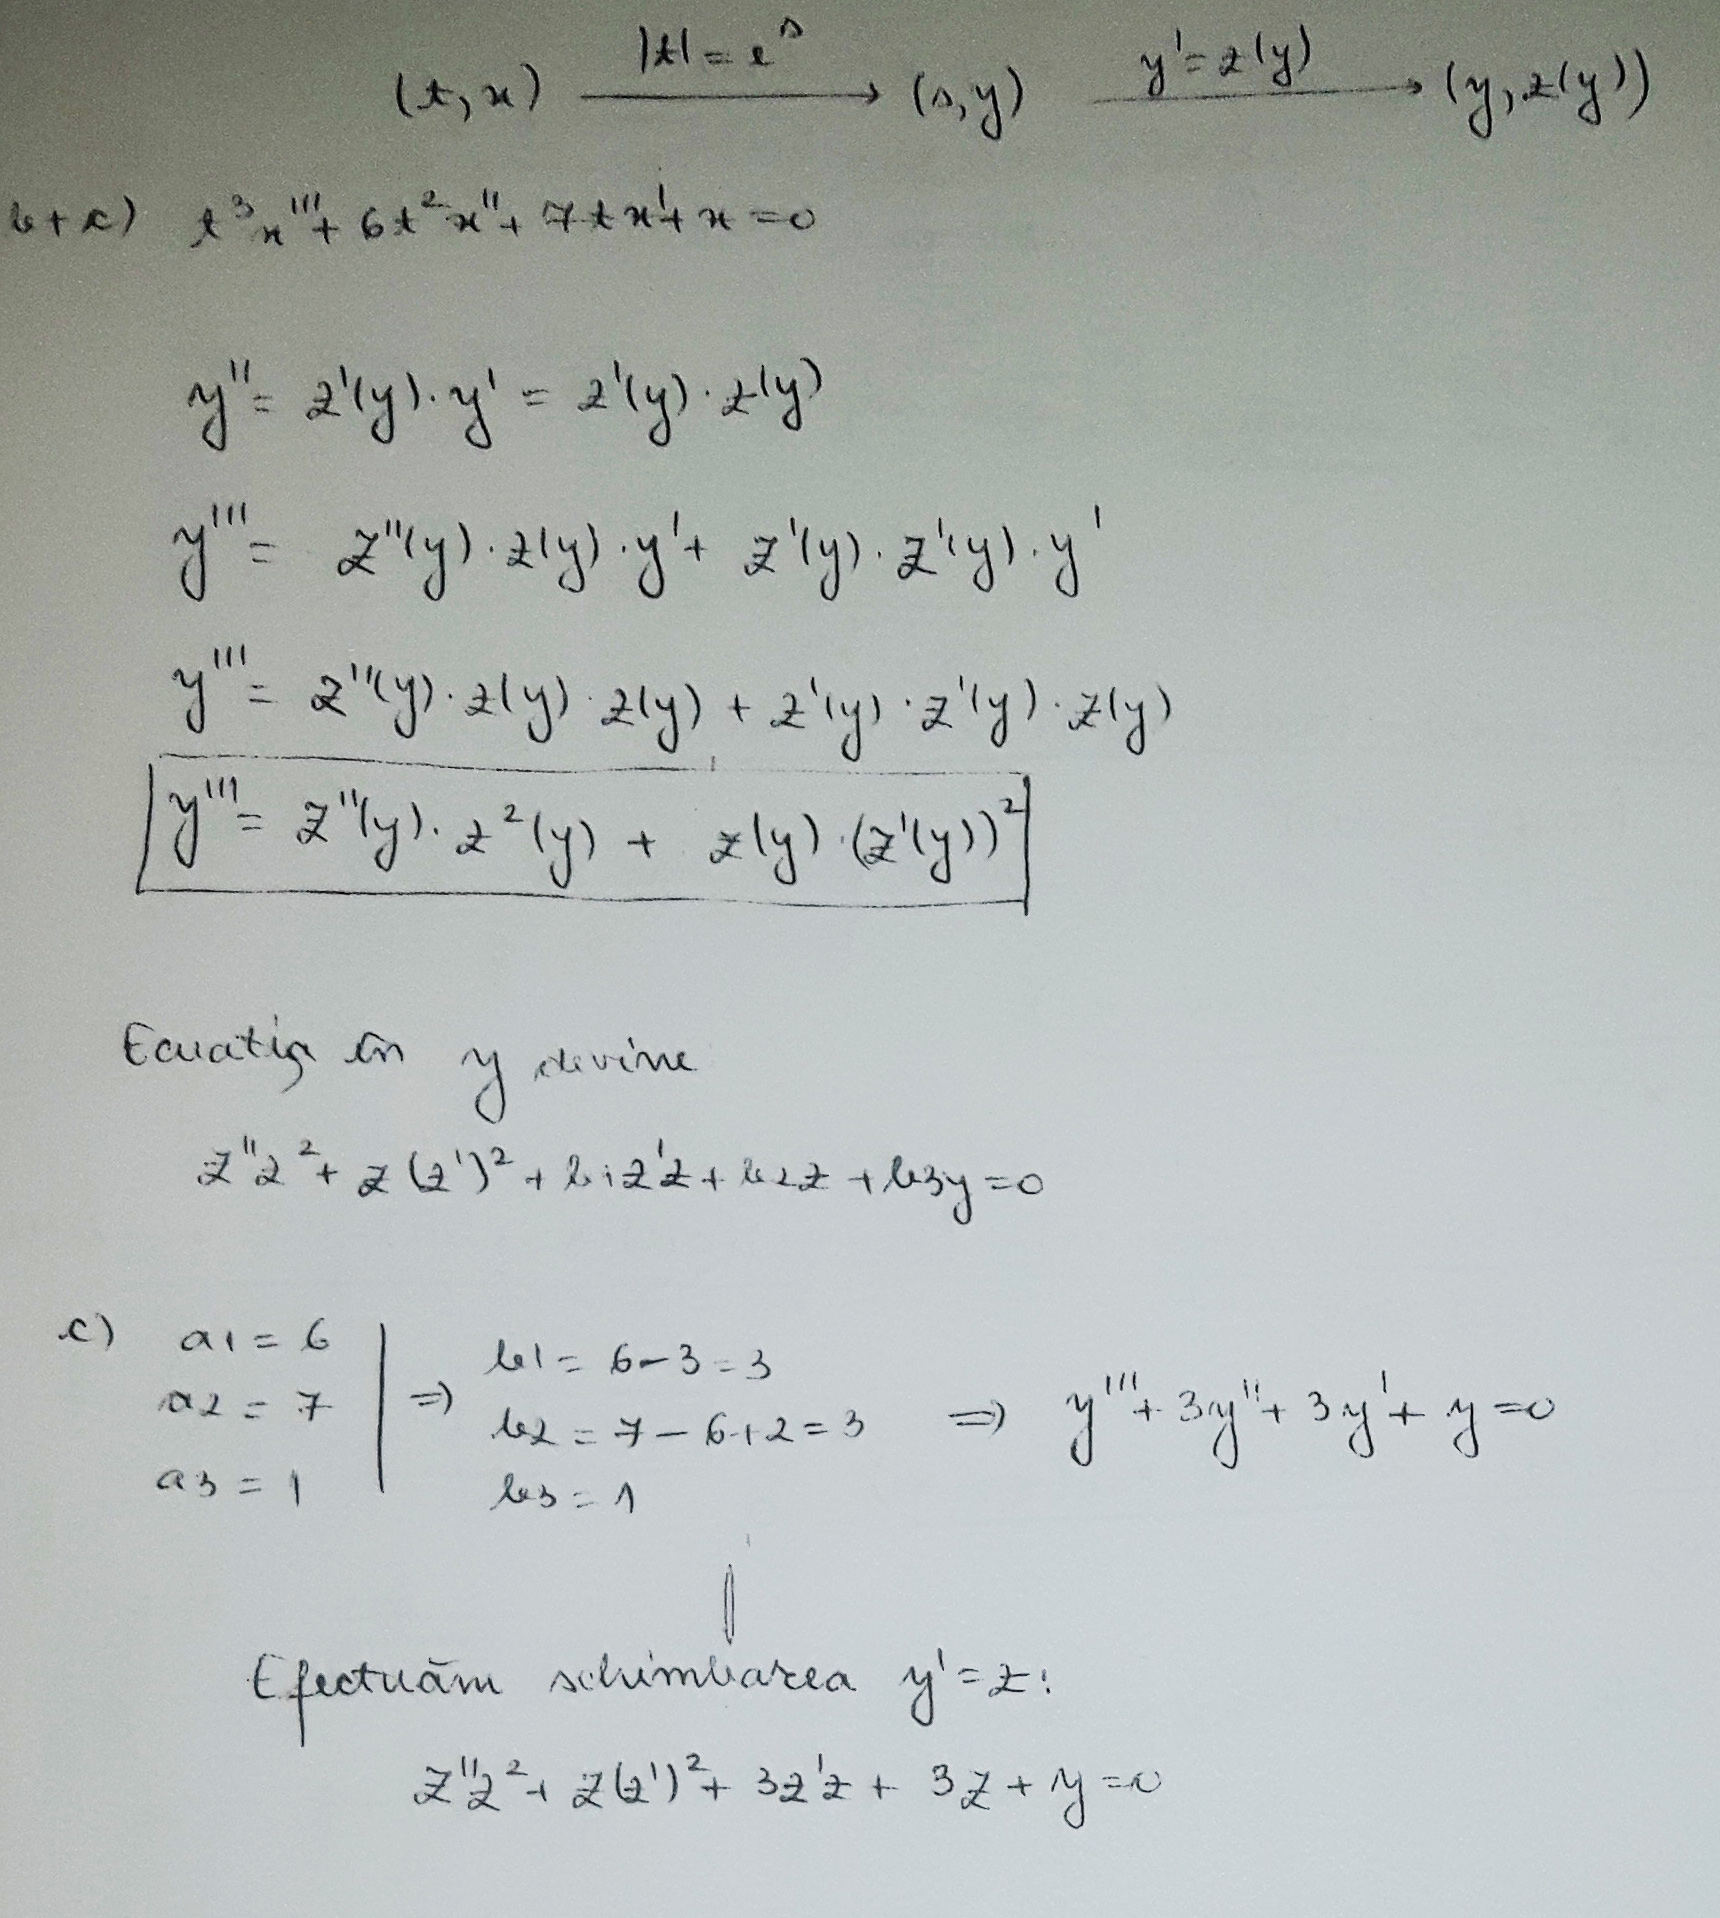 (t, x) |t| = e^s → (s, y) y' = z(y) → (y, z(y))
b+c) t³x''' + 6t²x'' + 7tx' + x = 0
y'' = z'(y)·y' = z'(y)·z(y)
y''' = z''(y)·z(y)·y' + z'(y)·z'(y)·y'
y''' = z''(y)·z(y)·z(y) + z'(y)·z'(y)·z(y)
y''' = z''(y)·z²(y) + z(y)·(z'(y))²
Ecuația în y devine
z''z² + z(z')² + b1z'z + b2z + b3y = 0
c) a1 = 6
a2 = 7
a3 = 1
⇒ b1 = 6-3 = 3
b2 = 7-6+2 = 3
b3 = 1
⇒ y''' + 3y'' + 3y' + y = 0
Efectuăm schimbarea y' = z:
z''z² + z(z')² + 3z'z + 3z + y = 0